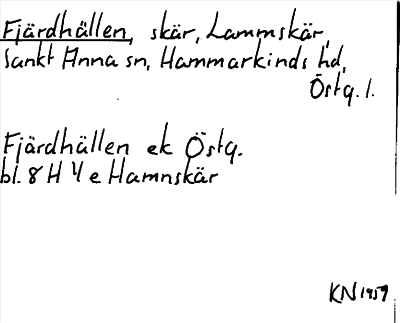 Fjärdhällen, skär, Lammskär,
Sankt Anna sn, Hammarkinds hd,
Östg. l.
Fjärdhällen ek Östg.
bl. 8 H 4 e Hamnskär
KN 1959